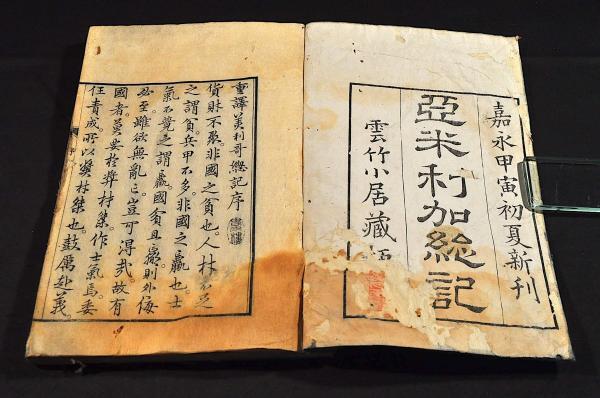 嘉永甲寅初夏新刊
亞米利加総記
雲竹小居藏
重譯美利哥総記序
貨財不聚。非國之貧也。人材不足
之謂貧。兵甲不多。非國之羸也。士
氣不竸之謂羸。國貧且羸。則外侮
必至。雖欲無亂亡。豈可得哉。故有
國者莫要於奬材桀。作士氣焉。委
任責成。所以奬材桀也。鼓厲赴義。